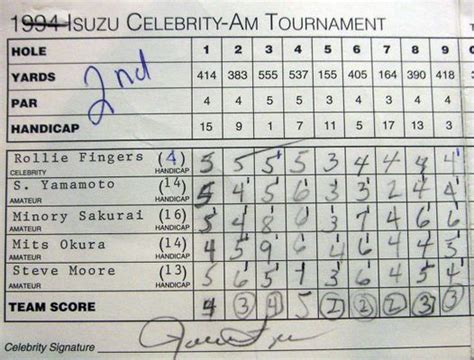 1994 ISUZU CELEBRITY-AM TOURNAMENT
HOLE 1 2 3 4 5 6 7 8 9
YARDS 414 383 555 537 155 405 164 390 418
PAR 4 4 5 5 3 4 3 4 4
HANDICAP 15 9 1 7 11 5 17 13 3
2nd
Rollie Fingers (4) 5 5 5 5 3 4 4 4 4
CELEBRITY HANDICAP
S. Yamamoto (14) 5 4 5 6 3 3 2 4 4
AMATEUR HANDICAP
Minory Sakurai (16) 5 4 8 6 3 7 4 6 6
AMATEUR HANDICAP
Mits Okura (14) 4 5 9 6 4 6 4 4 5
AMATEUR HANDICAP
Steve Moore (13) 5 6 5 7 3 6 4 5 4
AMATEUR HANDICAP
TEAM SCORE 4 3 4 5 2 2 2 3 3
Celebrity Signature